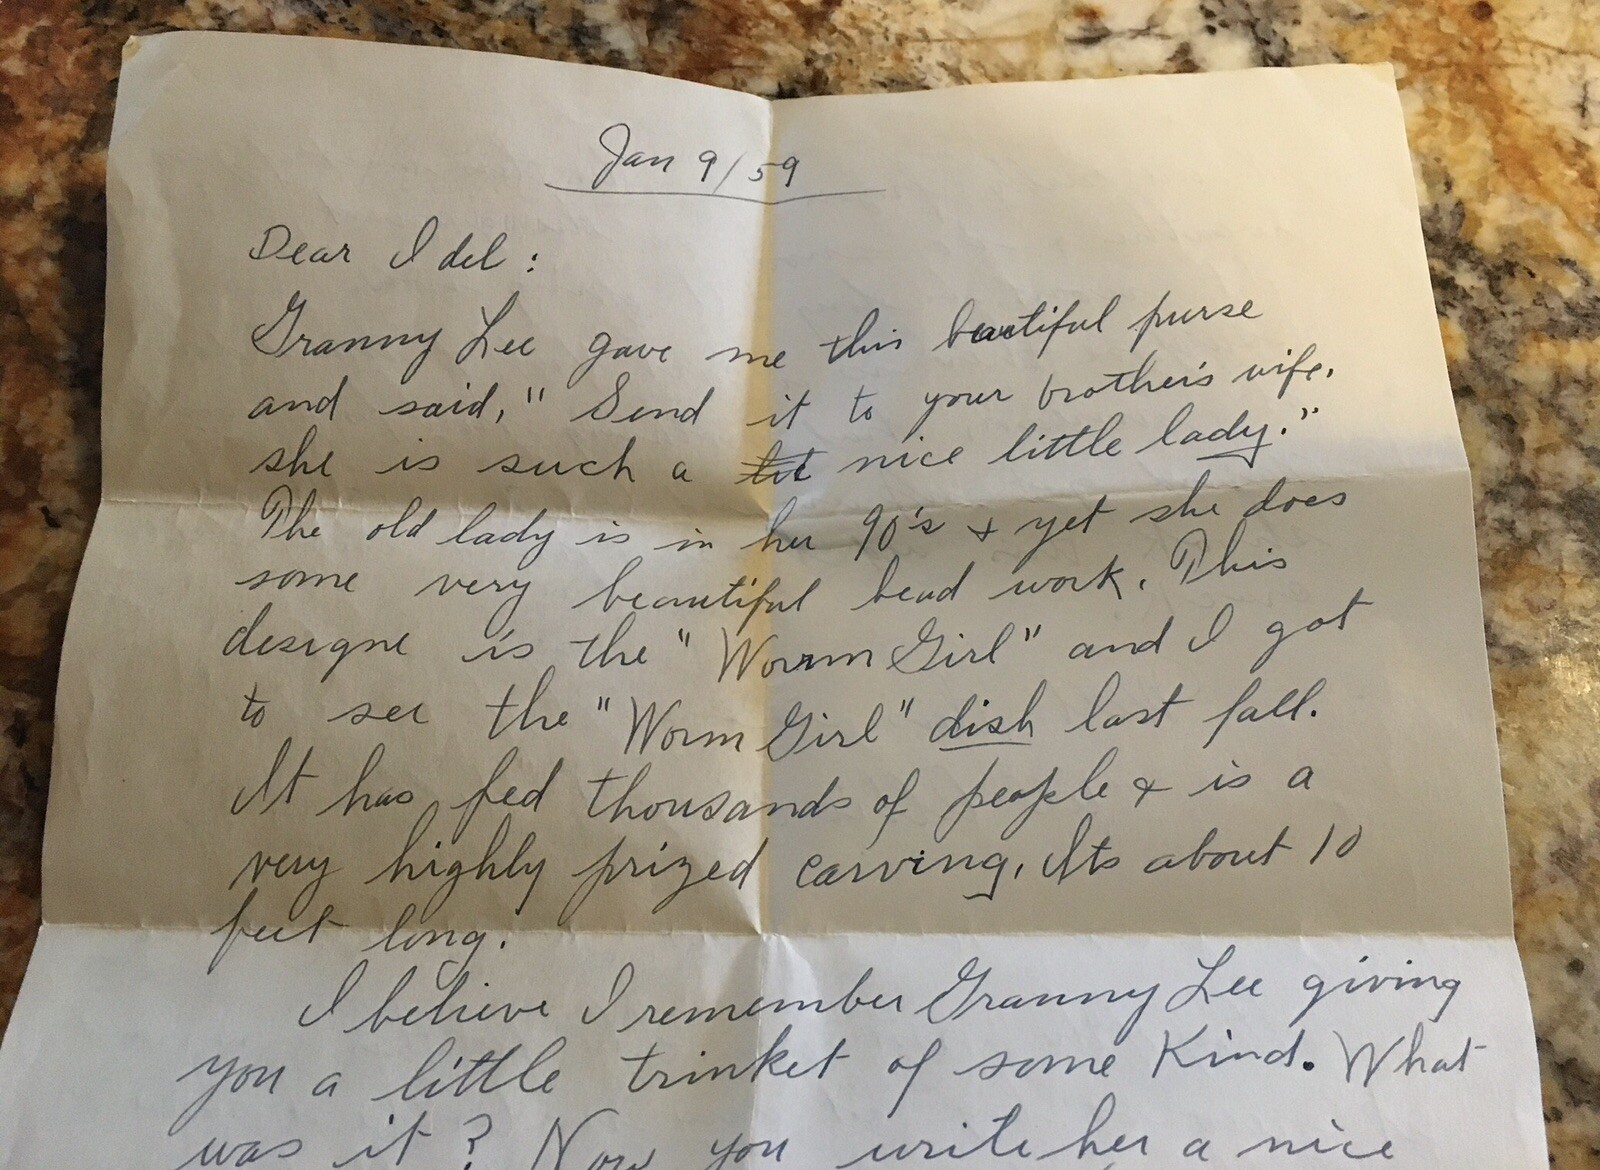 Jan 9/59
Dear Idel:
Granny Lee gave me this beautiful purse
and said, "Send it to your brother's wife,
she is such a nice little lady."
The old lady is in her 90's & yet she does
some very beautiful bead work. This
designe is the "Worm Girl" and I got
to see the "Worm Girl" dish last fall.
It has fed thousands of people & is a
very highly prized carving, Its about 10
feet long.
I believe I remember Granny Lee giving
you a little trinket of some Kind. What
was it? Now you write her a nice